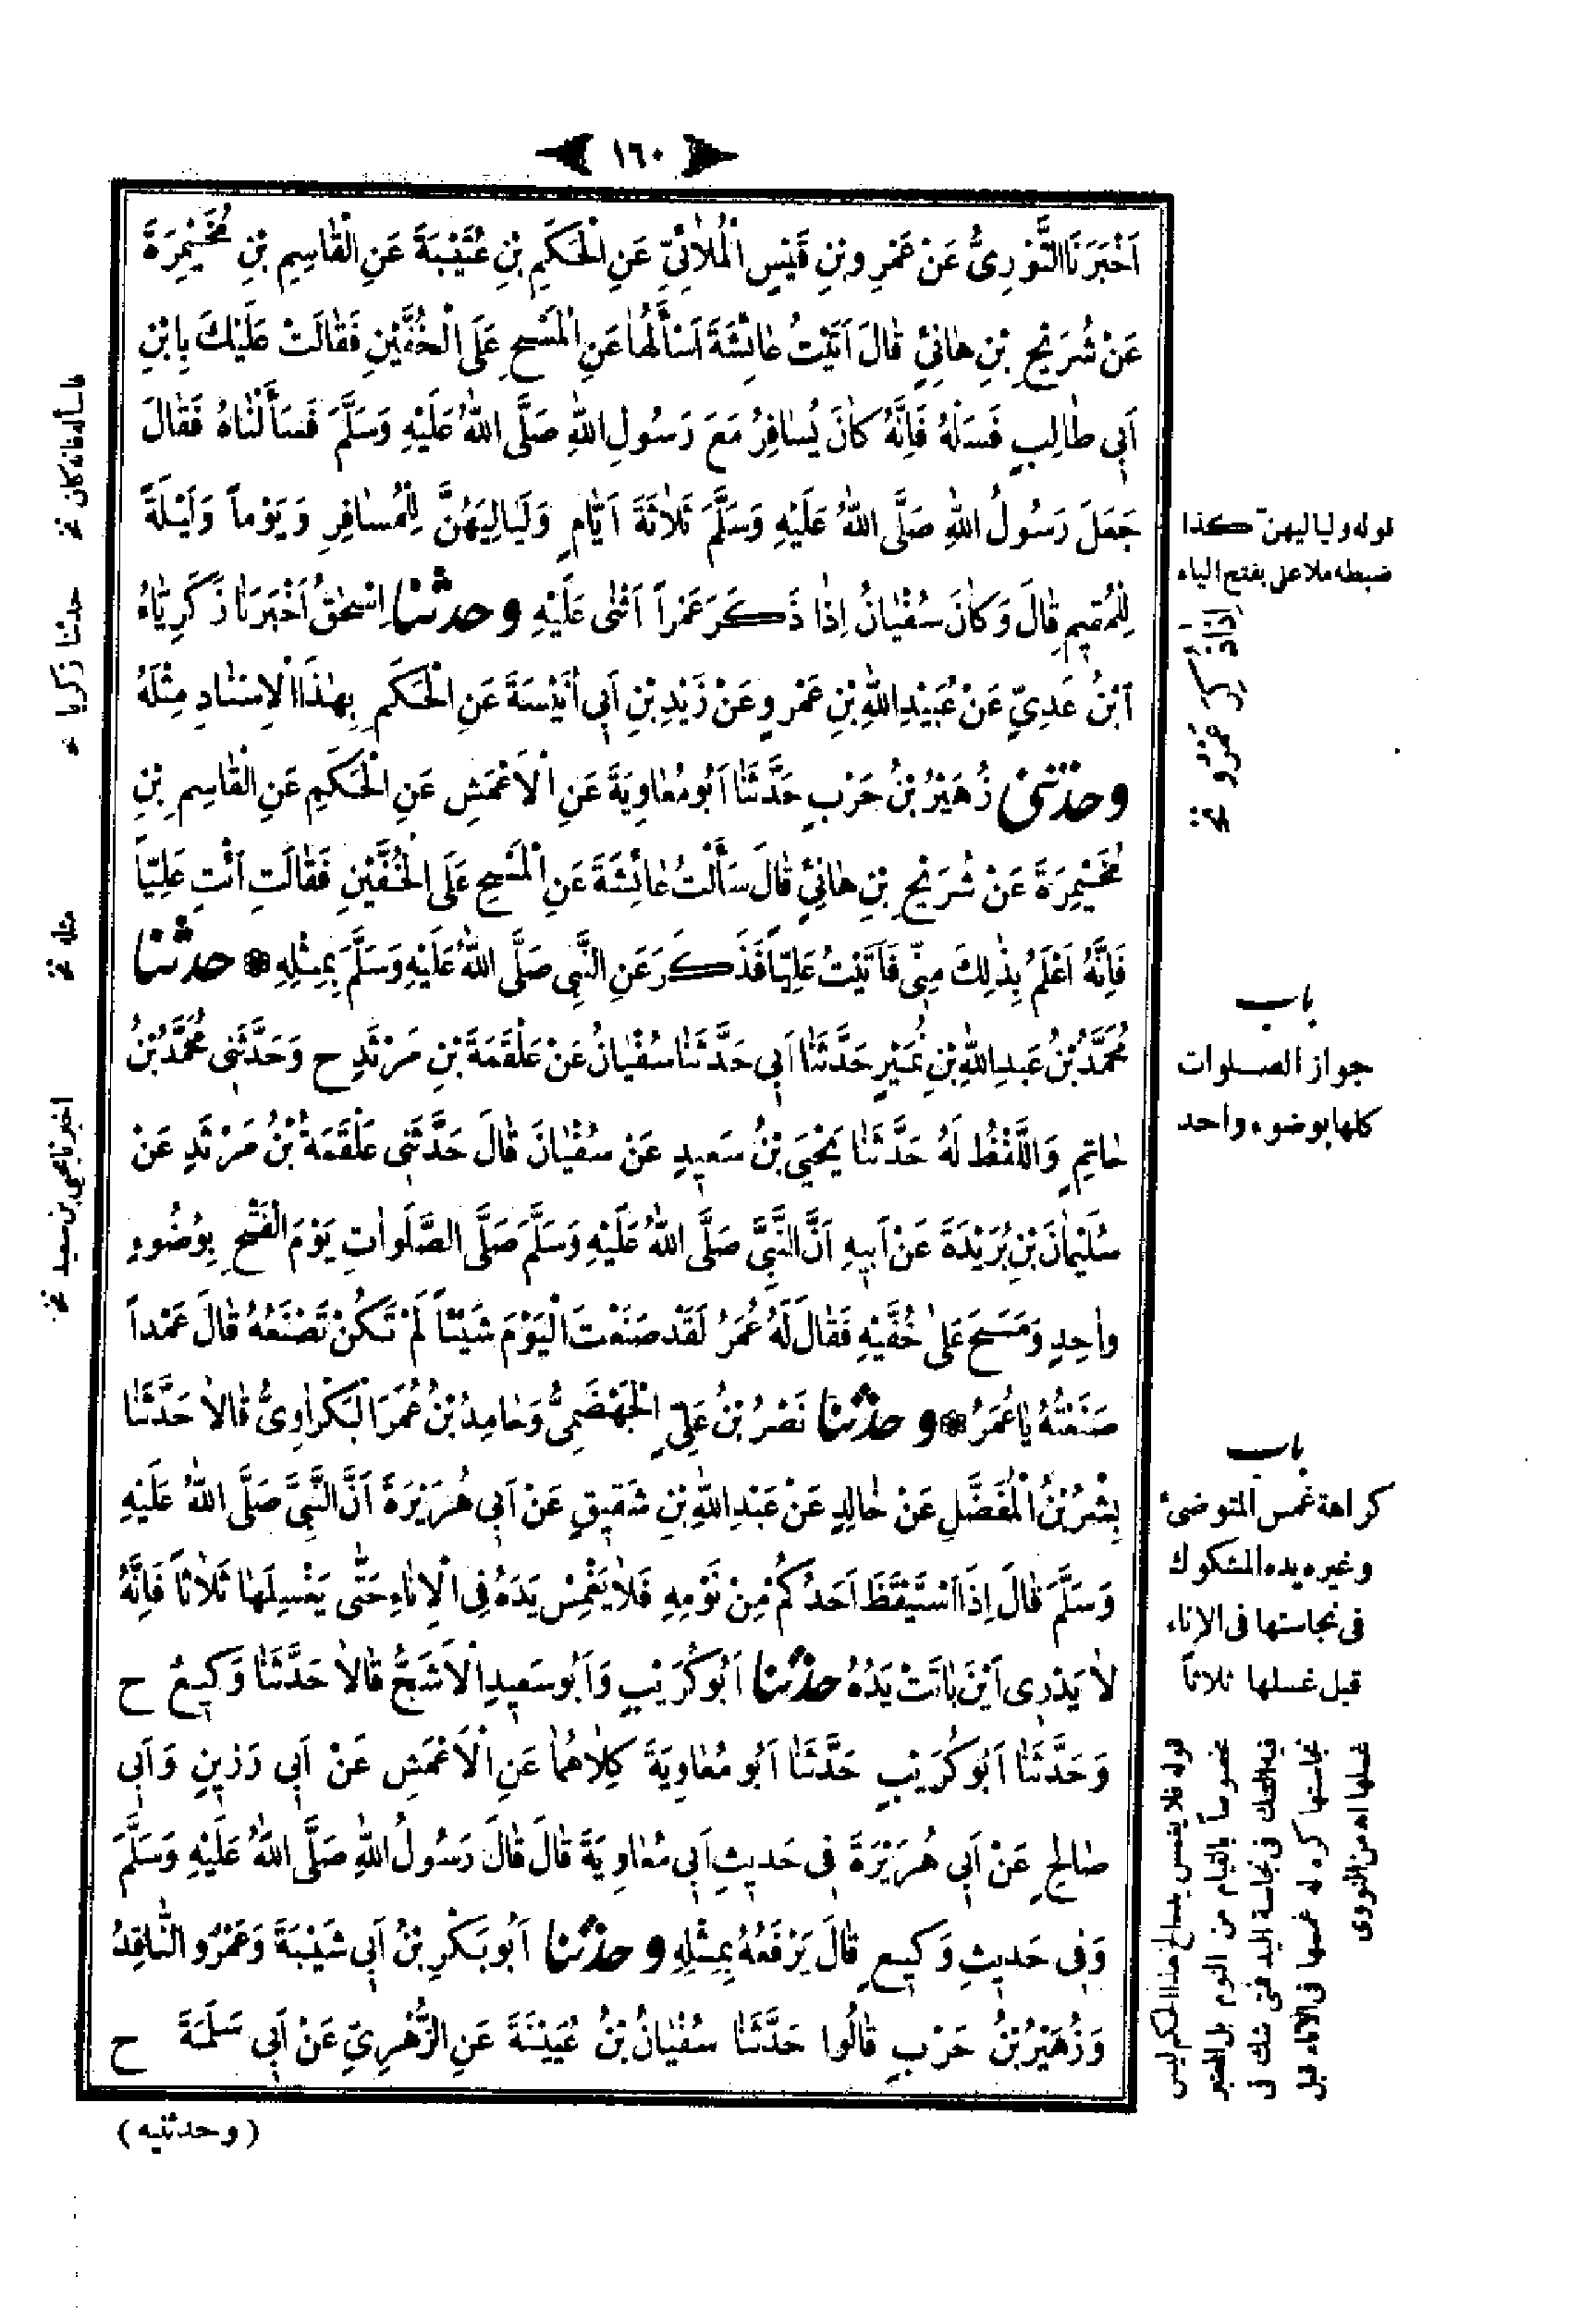 ١٦٠
اَخْبَرَنَا الثَّوْرِىُّ عَنْ عَمْرِو بْنِ قَيْسٍ الْمُلَائِىِّ عَنِ الْحَكَمِ بْنِ عُتَيْبَةَ عَنِ الْقَاسِمِ بْنِ مُخَيْمِرَةَ
عَنْ شُرَيْحِ بْنِ هَانِئٍ قَالَ اَتَيْتُ عَائِشَةَ اَسْأَلُهَا عَنِ الْمَسْحِ عَلَى الْخُفَّيْنِ فَقَالَتْ عَلَيْكَ بِابْنِ
اَبِى طَالِبٍ فَسَلْهُ فَاِنَّهُ كَانَ يُسَافِرُ مَعَ رَسُولِ اللّٰهِ صَلَّى اللّٰهُ عَلَيْهِ وَسَلَّمَ فَسَأَلْنَاهُ فَقَالَ
جَعَلَ رَسُولُ اللّٰهِ صَلَّى اللّٰهُ عَلَيْهِ وَسَلَّمَ ثَلَاثَةَ اَيَّامٍ وَلَيَالِيَهُنَّ لِلْمُسَافِرِ وَيَوْماً وَلَيْلَةً
لِلْمُقِيمِ قَالَ وَكَانَ سُفْيَانُ اِذَا ذَكَرَ عَمْراً اَثْنَى عَلَيْهِ وحدثنا اِسْحٰقُ اَخْبَرَنَا زَكَرِيَّاءُ
ابْنُ عَدِىٍّ عَنْ عُبَيْدِ اللّٰهِ بْنِ عَمْرٍو عَنْ زَيْدِ بْنِ اَبِى اُنَيْسَةَ عَنِ الْحَكَمِ بِهٰذَا الْاِسْنَادِ مِثْلَهُ
وحدثنى زُهَيْرُ بْنُ حَرْبٍ حَدَّثَنَا اَبُو مُعَاوِيَةَ عَنِ الْاَعْمَشِ عَنِ الْحَكَمِ عَنِ الْقَاسِمِ بْنِ
مُخَيْمِرَةَ عَنْ شُرَيْحِ بْنِ هَانِئٍ قَالَ سَأَلْتُ عَائِشَةَ عَنِ الْمَسْحِ عَلَى الْخُفَّيْنِ فَقَالَتِ ائْتِ عَلِيّاً
فَاِنَّهُ اَعْلَمُ بِذٰلِكَ مِنِّى فَاَتَيْتُ عَلِيّاً فَذَكَرَ عَنِ النَّبِىِّ صَلَّى اللّٰهُ عَلَيْهِ وَسَلَّمَ بِمِثْلِهِ ❁ حدثنا
مُحَمَّدُ بْنُ عَبْدِ اللّٰهِ بْنِ نُمَيْرٍ حَدَّثَنَا اَبِى حَدَّثَنَا سُفْيَانُ عَنْ عَلْقَمَةَ بْنِ مَرْثَدٍ ح وَحَدَّثَنِى مُحَمَّدُ بْنُ
حَاتِمٍ وَاللَّفْظُ لَهُ حَدَّثَنَا يَحْيَى بْنُ سَعِيدٍ عَنْ سُفْيَانَ قَالَ حَدَّثَنِى عَلْقَمَةُ بْنُ مَرْثَدٍ عَنْ
سُلَيْمَانَ بْنِ بُرَيْدَةَ عَنْ اَبِيهِ اَنَّ النَّبِىَّ صَلَّى اللّٰهُ عَلَيْهِ وَسَلَّمَ صَلَّى الصَّلَوَاتِ يَوْمَ الْفَتْحِ بِوُضُوءٍ
وَاحِدٍ وَمَسَحَ عَلَى خُفَّيْهِ فَقَالَ لَهُ عُمَرُ لَقَدْ صَنَعْتَ الْيَوْمَ شَيْئاً لَمْ تَكُنْ تَصْنَعُهُ قَالَ عَمْداً
صَنَعْتُهُ يَا عُمَرُ ❁ وحدثنا نَصْرُ بْنُ عَلِىٍّ الْجَهْضَمِىُّ وَحَامِدُ بْنُ عُمَرَ الْبَكْرَاوِىُّ قَالَا حَدَّثَنَا
بِشْرُ بْنُ الْمُفَضَّلِ عَنْ خَالِدٍ عَنْ عَبْدِ اللّٰهِ بْنِ شَقِيقٍ عَنْ اَبِى هُرَيْرَةَ اَنَّ النَّبِىَّ صَلَّى اللّٰهُ عَلَيْهِ
وَسَلَّمَ قَالَ اِذَا اسْتَيْقَظَ اَحَدُكُمْ مِنْ نَوْمِهِ فَلَا يَغْمِسْ يَدَهُ فِى الْاِنَاءِ حَتَّى يَغْسِلَهَا ثَلَاثاً فَاِنَّهُ
لَا يَدْرِى اَيْنَ بَاتَتْ يَدُهُ حدثنا اَبُو كُرَيْبٍ وَاَبُو سَعِيدٍ الْاَشَجُّ قَالَا حَدَّثَنَا وَكِيعٌ ح
وَحَدَّثَنَا اَبُو كُرَيْبٍ حَدَّثَنَا اَبُو مُعَاوِيَةَ كِلَاهُمَا عَنِ الْاَعْمَشِ عَنْ اَبِى رَزِينٍ وَاَبِى
صَالِحٍ عَنْ اَبِى هُرَيْرَةَ فِى حَدِيثِ اَبِى مُعَاوِيَةَ قَالَ قَالَ رَسُولُ اللّٰهِ صَلَّى اللّٰهُ عَلَيْهِ وَسَلَّمَ
وَفِى حَدِيثِ وَكِيعٍ قَالَ يَرْفَعُهُ بِمِثْلِهِ وحدثنا اَبُو بَكْرِ بْنُ اَبِى شَيْبَةَ وَعَمْرٌو النَّاقِدُ
وَزُهَيْرُ بْنُ حَرْبٍ قَالُوا حَدَّثَنَا سُفْيَانُ بْنُ عُيَيْنَةَ عَنِ الزُّهْرِىِّ عَنْ اَبِى سَلَمَةَ ح
(وحدثنيه)
قوله ولياليهنّ كذا
ضبطه ملا على بفتح الياء
اِذَا ذُكِرَ عَمْرٌو نخ
باب
جواز الصلوات
كلها بوضوء واحد
باب
كراهة غمس المتوضئ
وغيره يده المشكوك
فى نجاستها فى الاناء
قبل غسلها ثلاثاً
قوله فلا يغمس يده الخ هذا الحكم ليس
مخصوصاً بالقيام من النوم بل المعتبر
فيه الشك فى نجاسة اليد فمتى شك فى
نجاستها كره له غمسها فى الاناء قبل
غسلها اه من النووى
فاسأله فانه كان نخ
حدثنا زكريا نخ
مثله نخ
اخبرنا يحيى بن سعيد نخ